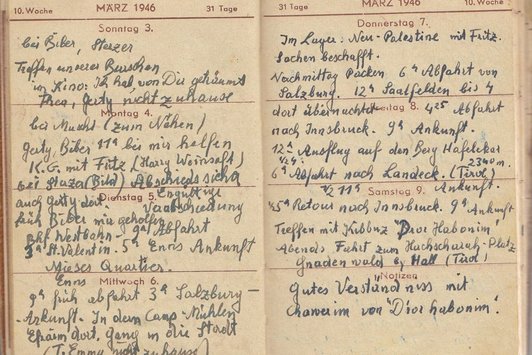 10. Woche MÄRZ 1946 31 Tage
Sonntag 3.
bei Biber, Sterzer
Treffen unserer Burschen
im Kino: Ich hab von Dir geträumt
Thea, Gerty nicht zuhause
Montag 4.
bei Muckl (zum Nähen)
Gerty, Biber 11ª bei mir helfen
K.G. mit Fritz (Harry Weinsaft)
bei Staza (Bild) Abschied
auch Gerty dort. Engültige
Dienstag 5. Verabschiedung
früh Biber mir geholfen
Bhf Westbahn. 9ª Abfahrt
3ª St. Valentin. 5ª Enns Ankunft
Mieses Quartier.
Enns
Mittwoch 6.
9ª früh abfahrt 3ª Salzburg –
Ankunft. In dem Camp Mühlen
Efraim dort, Gang in die Stadt
(T. Emmy nicht zuhause)
10. Woche MÄRZ 1946 31 Tage
Donnerstag 7.
Im Lager: Neu-Palestine mit Fritz.
Sachen beschafft.
Nachmittag Packen. 6ª Abfahrt von
Salzburg. 12ª Saalfelden bis 4
dort übernachtet
Freitag 8. 4²⁵ Abfahrt
nach Innsbruck. 9ª Ankunft.
12ª Ausflug auf den Berg Hafelekar
2340 m.
6ª Abfahrt nach Landeck. (Tirol)
½ 11ª Ankunft.
Samstag 9.
5ª Retour nach Innsbruck. 9ª Ankunft
Treffen mit Kibbuz "Dror Habonim"
Abends Fahrt zum Hachscharah-Platz
Gnadenwald by Hall (Tirol)
Notizen
Gutes Verständniss mit
Chaverim von "Dror habonim".